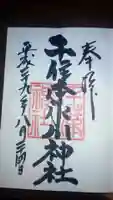 奉拝
千住本氷川神社
平成二十九年八月三十四日